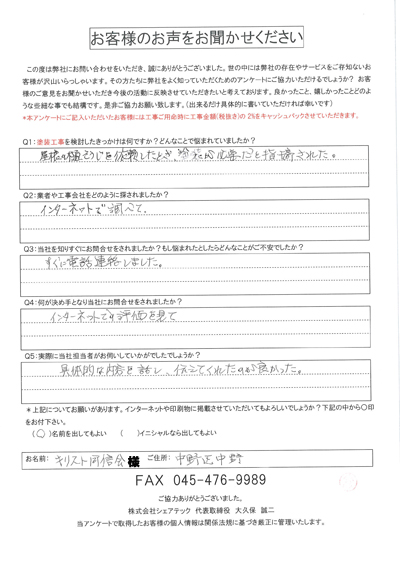 お客様のお声をお聞かせください
この度は弊社にお問い合わせをいただき、誠にありがとうございました。世の中には弊社の存在やサービスをご存知ないお
客様が沢山いらっしゃいます。その方たちに弊社をよく知っていただくためのアンケートにご協力いただけるでしょうか？ お客
様のご意見をお聞かせいただき今後の活動に反映させていただきたいと考えております。良かったこと、嬉しかったことどのよ
うな些細な事でも結構です。是非ご協力お願い致します。（出来るだけ具体的に書いていただければ幸いです）
*本アンケートにご記入いただいたお客様には工事ご用命時に工事金額(税抜き)の2%をキャッシュバックさせていただきます。
Q1：塗装工事を検討したきっかけは何ですか？どんなことで悩まれていましたか？
屋根の樋そうじを依頼したとき、塗装も必要だと指摘された。
Q2：業者や工事会社をどのように探されましたか？
インターネットで調べて．
Q3：当社を知りすぐにお問合せをされましたか？もし悩まれたとしたらどんなことがご不安でしたか？
すぐに電話連絡しました。
Q4：何が決め手となり当社にお問合せをされましたか？
インターネットでの評価を見て
Q5：実際に当社担当者がお伺いしていかがでしたでしょうか？
具体的な内容を話し、伝えてくれたのが良かった。
＊上記についてお願いがあります。インターネットや印刷物に掲載させていただいてもよろしいでしょうか？下記の中から〇印
をお付下さい。
（〇）名前を出してもよい （ ）イニシャルなら出してもよい
お名前： キリスト同信会 様 ご住所：
FAX 045-476-9989
ご協力ありがとうございました。
株式会社シェアテック 代表取締役 大久保 誠二
当アンケートで取得したお客様の個人情報は関係法規に基づき厳正に管理いたします。